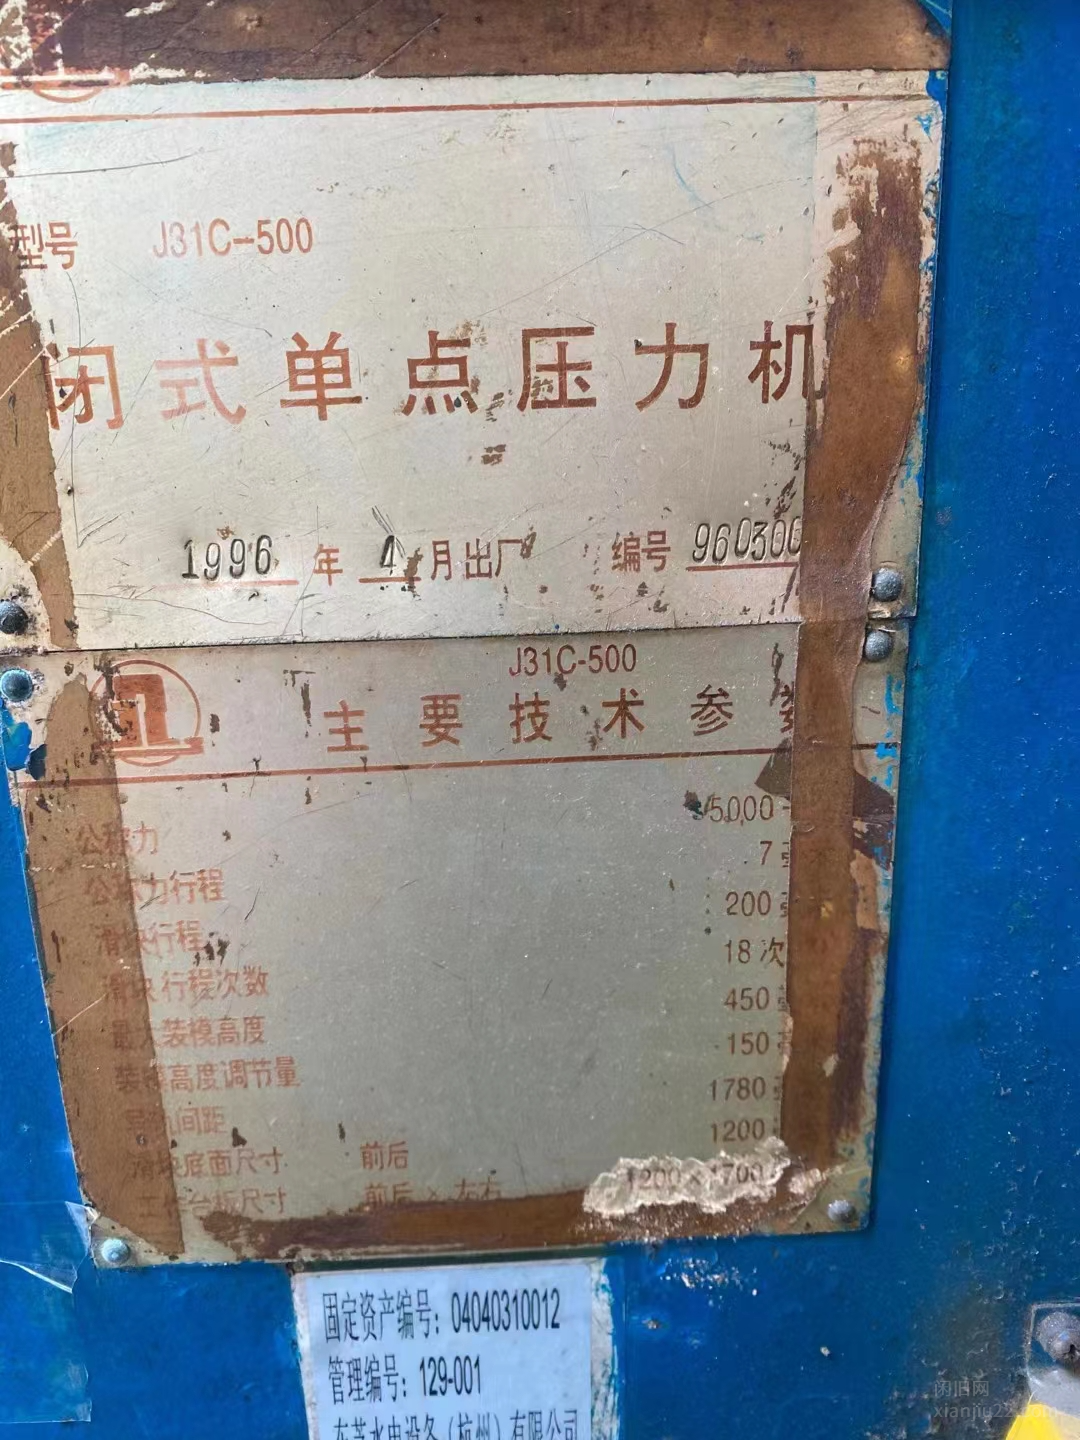 型号 J31C-500
闭式单点压力机
1996年4月出厂 编号 960300
J31C-500
主要技术参数
公称力 5000
公称力行程 7
滑块行程 200
滑块行程次数 18次
最大装模高度 450
装模高度调节量 150
导轨间距 1780
滑块底面尺寸 前后 1200
工作台板尺寸 前后×左右 1200×1700
固定资产编号：04040310012
管理编号：129-001
东芝水电设备（杭州）有限公司
闲旧网